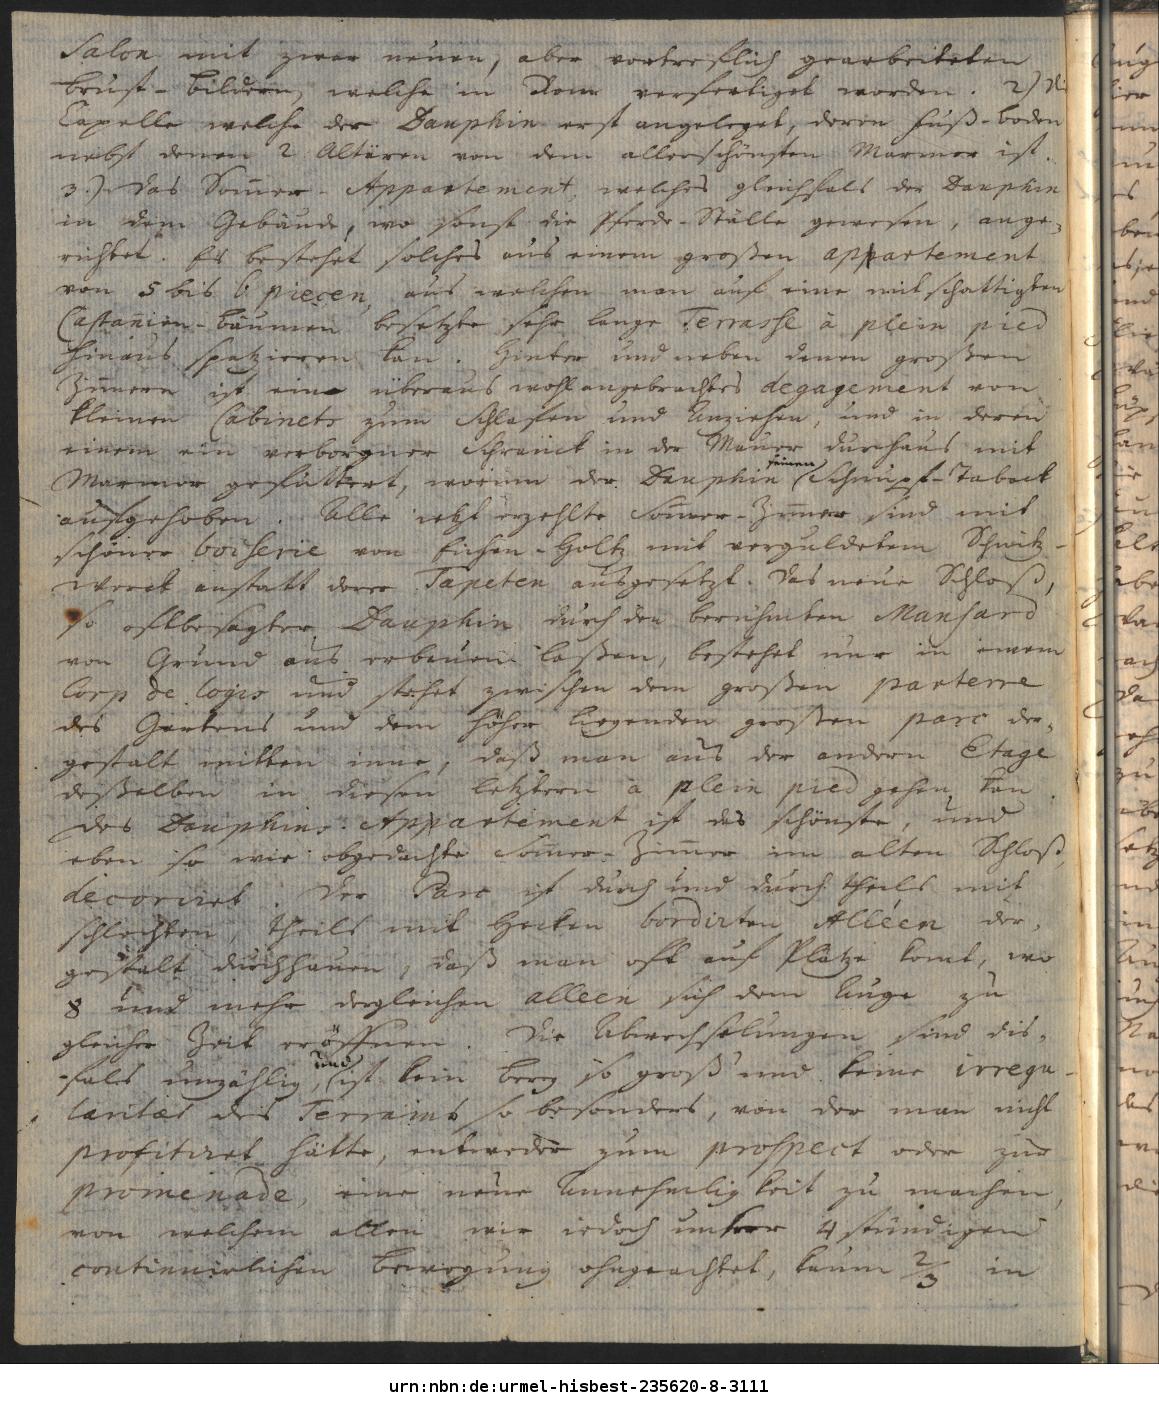 Salon mit zwar neuen, aber vortreflich gearbeiteten
brust-bildern, welche in Rom verfertiget worden. 2) Di
Capelle welche der Dauphin erst angeleget, deren fuß-boden
nebst denen 2 Altären von dem allerschönsten Marmor ist.
3.) Das Som̄er-Appartement, welches gleichfals der Dauphin
in dem Gebäude, wo sonst die Pferde-Ställe gewesen, ange-
richtet. Es bestehet solches aus einem großen appartement
von 5 bis 6 piecen, aus welchen man auf eine mit schattigten
Castanien-bäumen besetzte sehr lange Terrasse à plein pied
hinaus spatzieren kan. Hinter und neben denen großen
Zim̄ern ist eine überaus wohl angebrachtes degagement von
kleinen Cabinets zum Schlafen und Anziehen, und in deren
einem ein verborgner Schranck in der Mauer durchaus mit
Marmor gefüttert, worinn der Dauphin seinen Schnupf-Taback
aufgehoben. Alle jetzt erzehlte Som̄er-Zim̄er sind mit
schöner boiserie von Eichen-Holtz mit verguldetem Schnitz-
werck anstatt derer Tapeten ausgesetzt. Das neue Schloß,
so oftbesagter Dauphin durch den berühmten Mansard
von Grund aus erbauen laßen, bestehet nur in einem
Corp de logis und stehet zwischen dem großen parterre
des Gartens und dem höher liegenden großen parc der-
gestalt mitten inne, daß man aus der andern Etage
deßelben in diesen letztern à plein pied gehen kan.
Des Dauphins Appartement ist das schönste, und
eben so wie obgedachte Som̄er-Zim̄er im alten Schloß,
decoriret. Der Parc ist durch und durch theils mit
schlechten, theils mit Hecken bordirten Alléen der-
gestalt durchhauen, daß man oft auf Plätze komt, wo
8 und mehr dergleichen alleen sich dem Auge zu
gleicher Zeit eröffnen. Die Abwechselungen sind dis-
fals unzählig, und ist kein berg so groß und keine irregu-
laritæt des Terrains so besonders, von der man nicht
profitiret hätte, entweder zum prospect oder zur
promenade, eine neue Annehmligkeit zu machen,
von welchem allen wir jedoch unsrer 4 stündigen
continuirlichen bewegung ohngeachtet, kaum 2/3 in
urn:nbn:de:urmel-hisbest-235620-8-3111